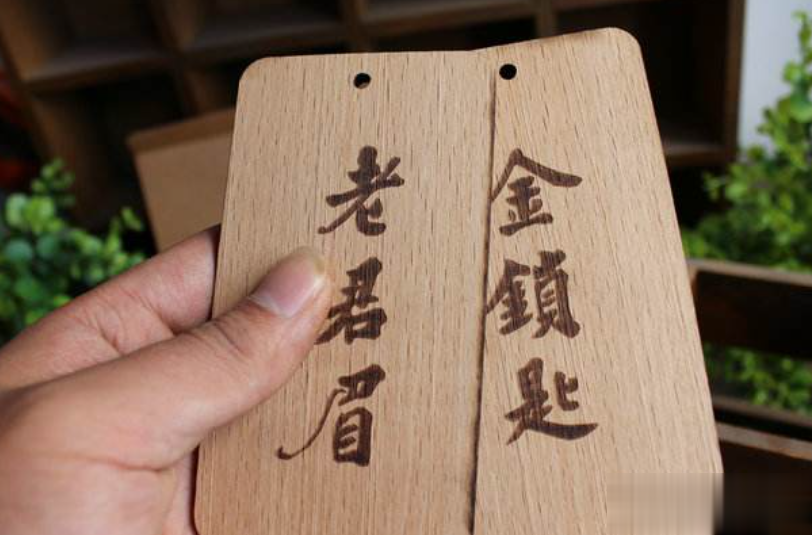 老君眉
金鎖匙